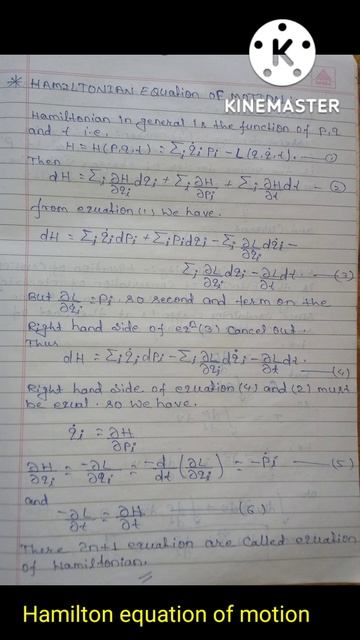 KINEMASTER
* HAMILTONIAN EQUATION OF MOTION
Hamiltonian in general is the function of p, q
and t i.e.
H = H(p,q,t) = Σj q̇j pj - L(q,q̇,t). —(1)
Then
dH = Σj ∂H/∂qj dqj + Σj ∂H/∂pj + Σj ∂H/∂t dt —(2)
from equation (1) we have.
dH = Σj q̇j dpj + Σj pj dq̇j - Σj ∂L/∂q̇j dq̇j -
Σj ∂L/∂qj dqj - ∂L/∂t dt. —(3)
But ∂L/∂q̇j = pj. so second and term on the
Right hand side of eqn (3) cancel out.
Thus
dH = Σj q̇j dpj - Σj ∂L/∂qj dqj - ∂L/∂t dt. —(4)
Right hand side of equation (4) and (2) must
be equal. so we have.
q̇j = ∂H/∂pj
∂H/∂qj = -∂L/∂qj = -d/dt (∂L/∂q̇j) = -ṗj —(5)
and
-∂L/∂t = ∂H/∂t (6)
There 2n+1 equation are called equation
of Hamiltonian.
Hamilton equation of motion